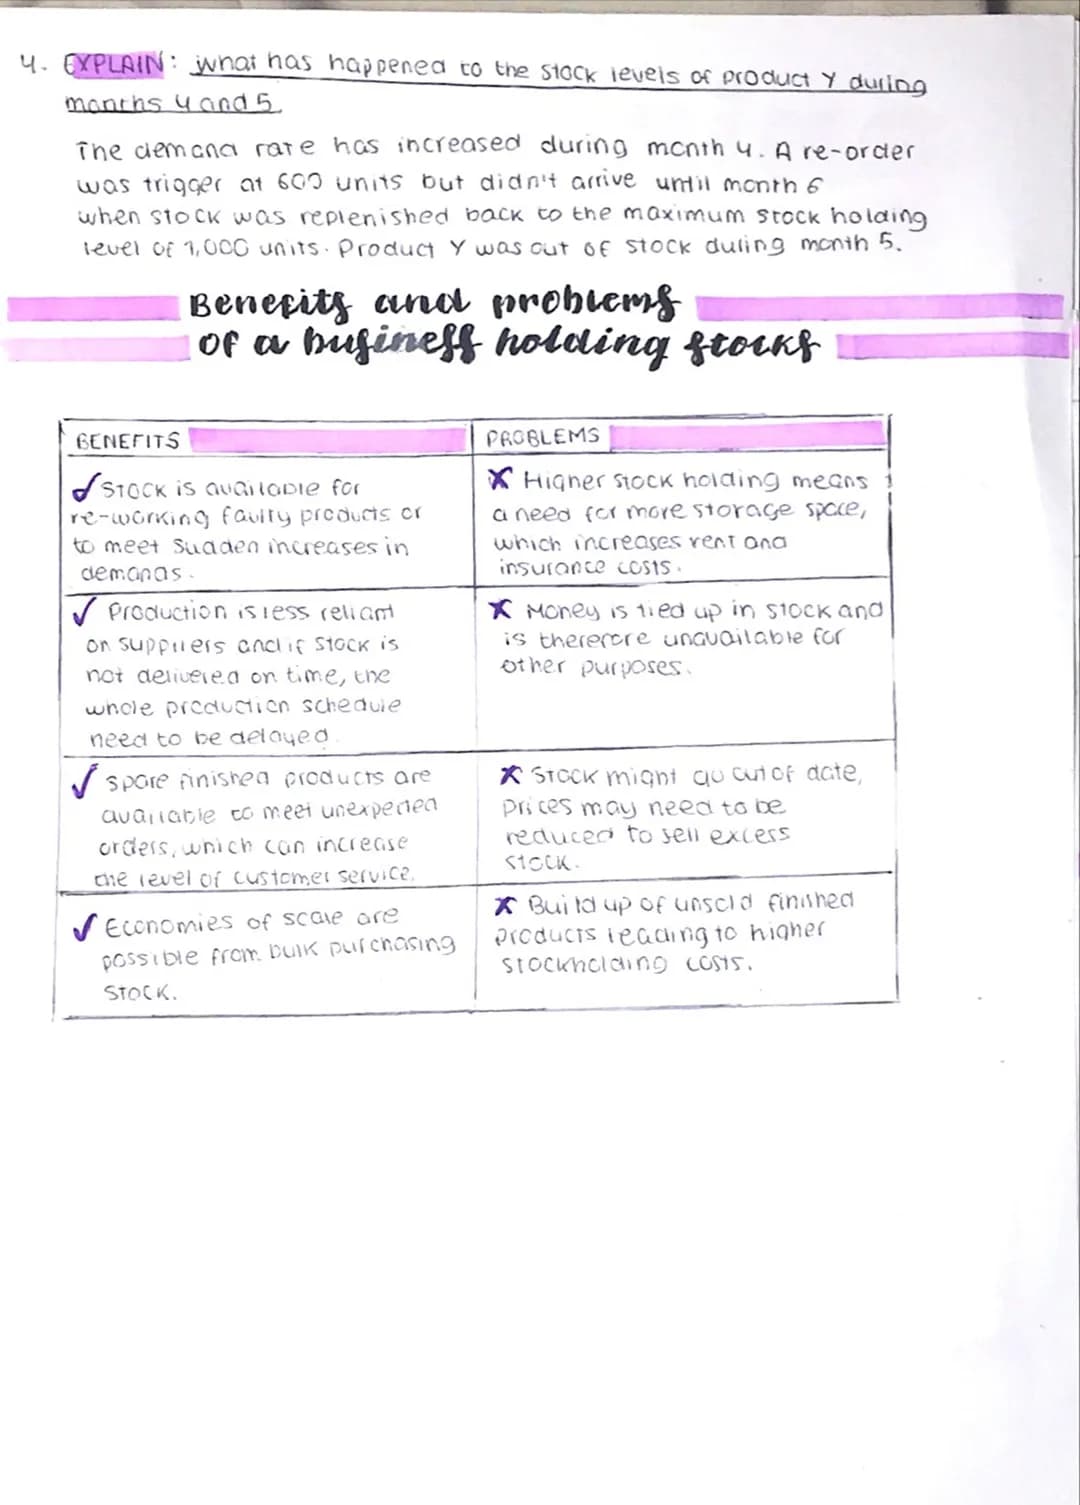 4. EXPLAIN: what has happened to the stock levels of product Y during
months 4 and 5.
The demand rate has increased during month 4. A re-order
was trigger at 600 units but didn't arrive until month 6
when stock was replenished back to the maximum stock holding
level of 1,000 units. Product Y was out of stock during month 5.
Benefits and problems
of a business holding stocks
BENEFITS
PROBLEMS
✓ Stock is available for
re-working faulty products or
to meet sudden increases in
demands.
X Higher stock holding means
a need for more storage space,
which increases rent and
insurance costs.
✓ Production is less reliant
on suppliers and if stock is
not delivered on time, the
whole production schedule
need to be delayed.
X Money is tied up in stock and
is therefore unavailable for
other purposes.
✓ Spare finished products are
available to meet unexpected
orders, which can increase
the level of customer service.
X Stock might go out of date,
prices may need to be
reduced to sell excess
stock.
✓ Economies of scale are
possible from bulk purchasing
stock.
X Build up of unsold finished
products leading to higher
stockholding costs.